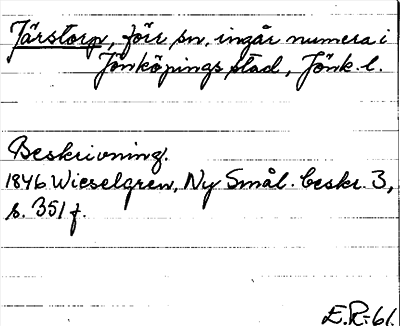 Järstorp, förr sn, ingår numera i
Jönköpings stad, Jönk. l.
Beskrivning.
1846 Wieselgren, Ny Smål. beskr. 3,
s. 351 f.
E.R-61.